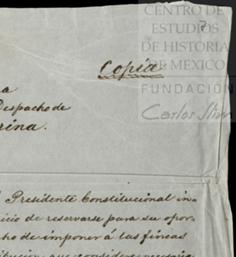 CENTRO DE
ESTUDIOS
DE HISTORIA
DE MEXICO
FUNDACIÓN
Carlos Slim
Copia
a
Despacho de
rina.
l Presidente Constitucional in-
icio de reservarse para su opor-
ho de imponer á las fincas
tribucion que considere necesaria